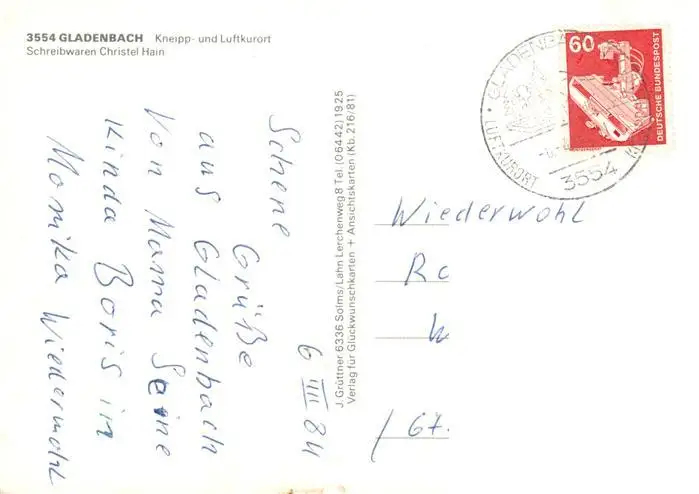 3554 GLADENBACH Kneipp- und Luftkurort
Schreibwaren Christel Hain
6 IIII 84
Schene
Grüße
aus Gladenbach
Von Mama Seine
Kinda Boris in
Monika Wiedermohl
J. Grüttner 6336 Solms/Lahn Lerchenweg 8 Tel. (06442) 1925
Verlag für Glückwunschkarten + Ansichtskarten (Kb. 216/81)
60
DEUTSCHE BUNDESPOST
GLADENBACH
LUFTKURORT
3554
Wiederwohl
Rc
W
/ 67.